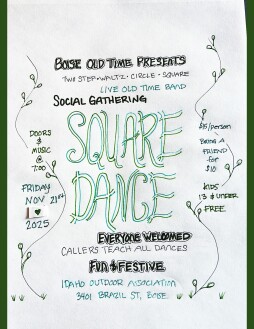 BOISE OLD TIME PRESENTS
TWO STEP • WALTZ • CIRCLE • SQUARE
LIVE OLD TIME BAND
SOCIAL GATHERING
SQUARE
DANCE
DOORS
&
MUSIC
@
7:00
FRIDAY
NOV 21ST
2025
$15/person
BRING A
FRIEND
FOR
$10
KIDS
13 & UNDER
FREE
EVERYONE WELCOMED
CALLERS TEACH ALL DANCES
FUN & FESTIVE
IDAHO OUTDOOR ASSOCIATION
3401 BRAZIL ST, BOISE